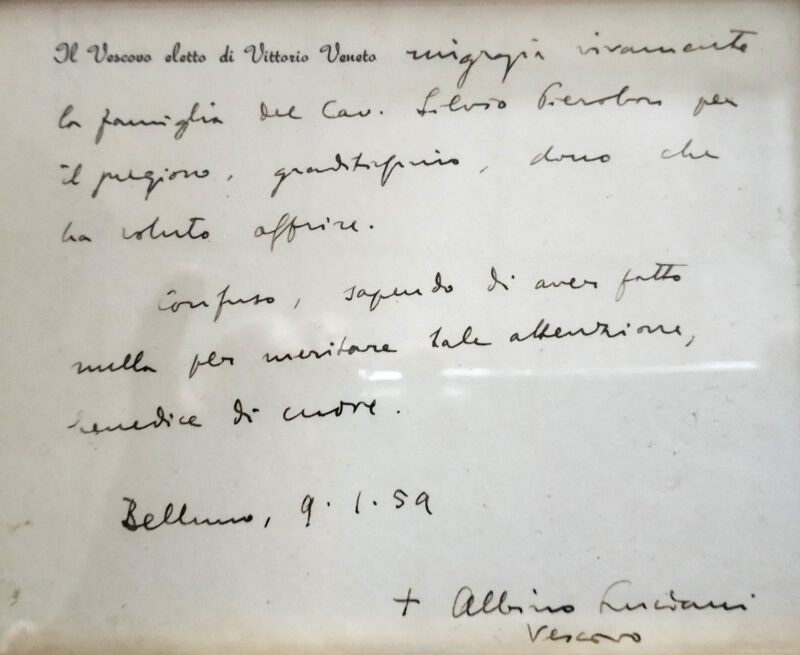 Il Vescovo eletto di Vittorio Veneto ringrazia vivamente
la famiglia del Cav. Silvio Pierobon per
il pregiato, graditissimo, dono che
ha voluto offrire.
Confuso, sapendo di aver fatto
nulla per meritare tale attenzione,
benedice di cuore.
Belluno, 9.1.59
+ Albino Luciani
Vescovo